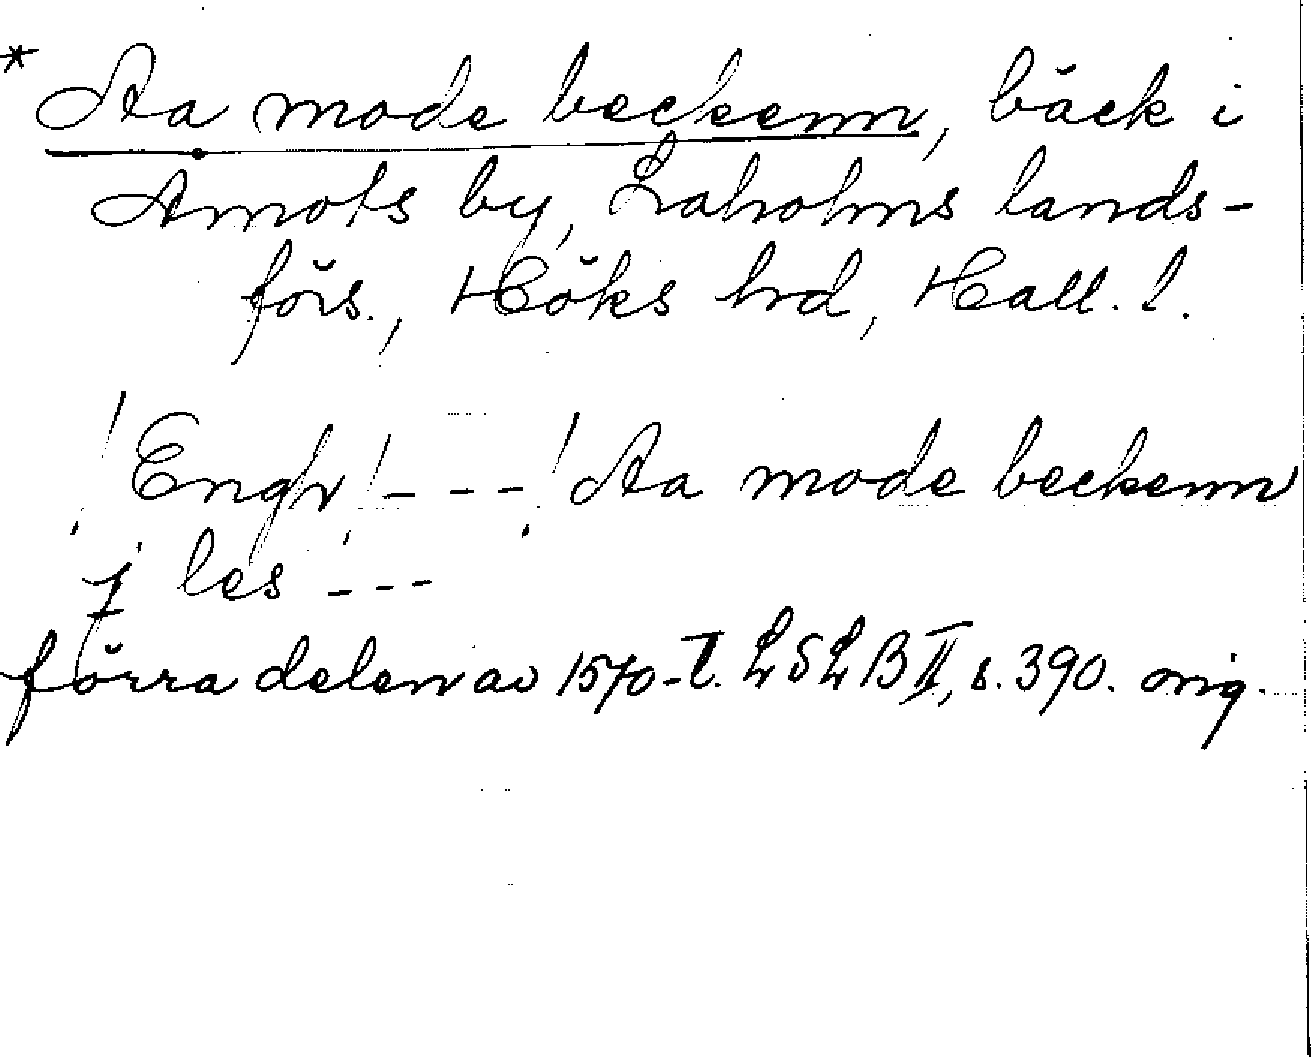 * Aa mode beckenn, bäck i
Amots by, Laholms lands-
förs., Höks hrd, Hall. l.
! Engh ! --- ! Aa mode beckenn
j les ---
förra delen av 1570-t. LSLB II, s. 390. orig.